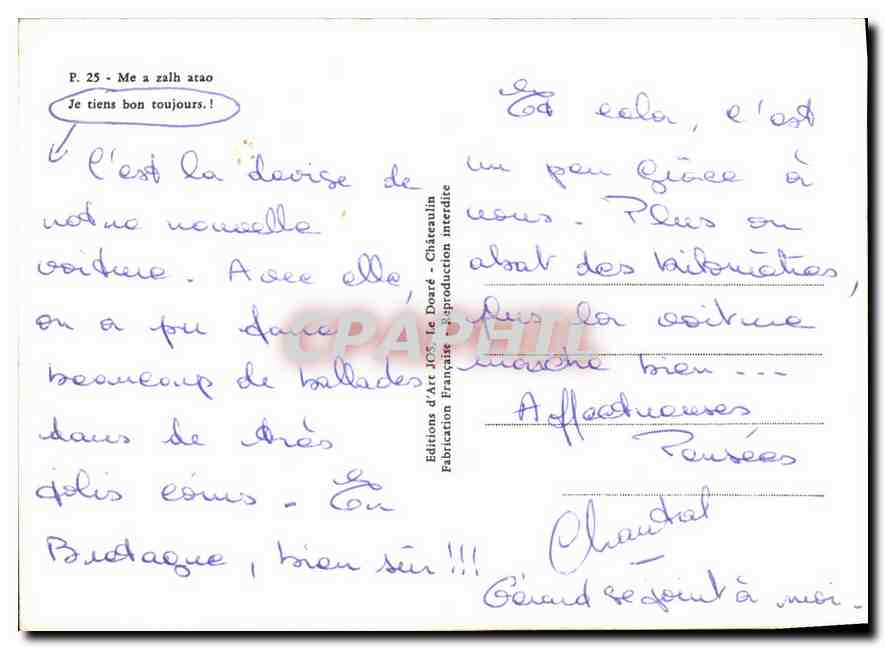 P. 25 - Me a zalh atao
Je tiens bon toujours.!
C'est la devise de
notre nouvelle
voiture. Avec elle,
on a pu faire
beaucoup de ballades
dans de très
jolis coins. En
Bretagne, bien sûr !!!
Editions d'Art JOS, Le Doaré - Châteaulin
Fabrication Française - Reproduction interdite
CPAPHIL
Et cela, c'est
un peu grâce à
vous. Plus on
abat des kilomètres,
plus la voiture
marche bien ---
Affectueuses
Pensées
Chantal
Gérard se joint à moi.